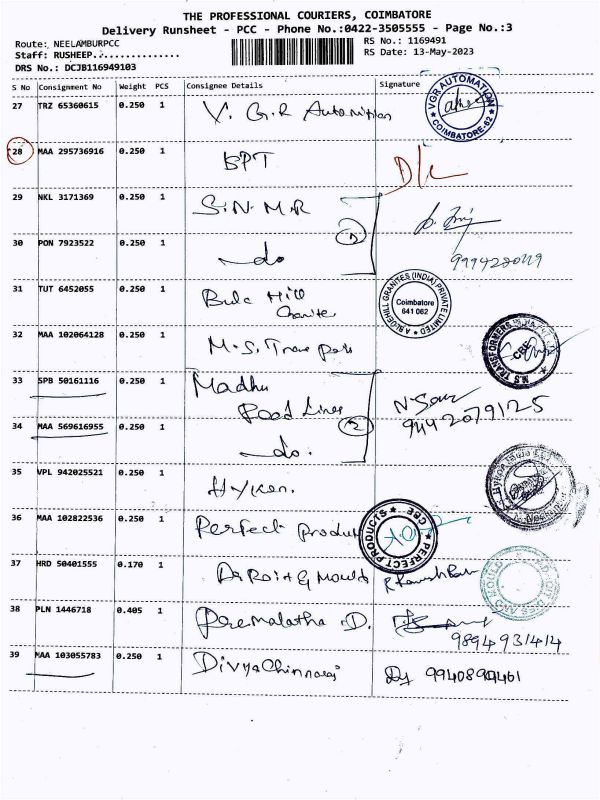 THE PROFESSIONAL COURIERS, COIMBATORE
Delivery Runsheet - PCC - Phone No.:0422-3505555 - Page No.:3
Route: NEELAMBURPCC
RS No.: 1169491
Staff: RUSHEEP................
RS Date: 13-May-2023
DRS No.: DCJB116949103
S No Consignment No Weight PCS Consignee Details Signature
27 TRZ 65360615 0.250 1 V. G.R
VGR AUTOMATION COIMBATORE-62
28 MAA 295736916 0.250 1 BPT D/L
29 NKL 3171369 0.250 1 S.N. M.R
30 PON 7923522 0.250 1 do
31 TUT 6452055 0.250 1 Hill
(INDIA) PRIVATE LIMITED
Coimbatore
641 062
32 MAA 102064128 0.250 1 M.S.
M.S TRANSFORMERS CBE
33 SPB 50161116 0.250 1 Madhu
Food Lines
2
9442079125
34 MAA 569616955 0.250 1 do.
35 VPL 942025521 0.250 1 Hyken.
36 MAA 102822536 0.250 1 Perfect
PERFECT PRODUCTS CBE
37 HRD 50401555 0.170 1 Mould
38 PLN 1446718 0.405 1 Premalatha .D.
9894931414
39 MAA 103055783 0.250 1